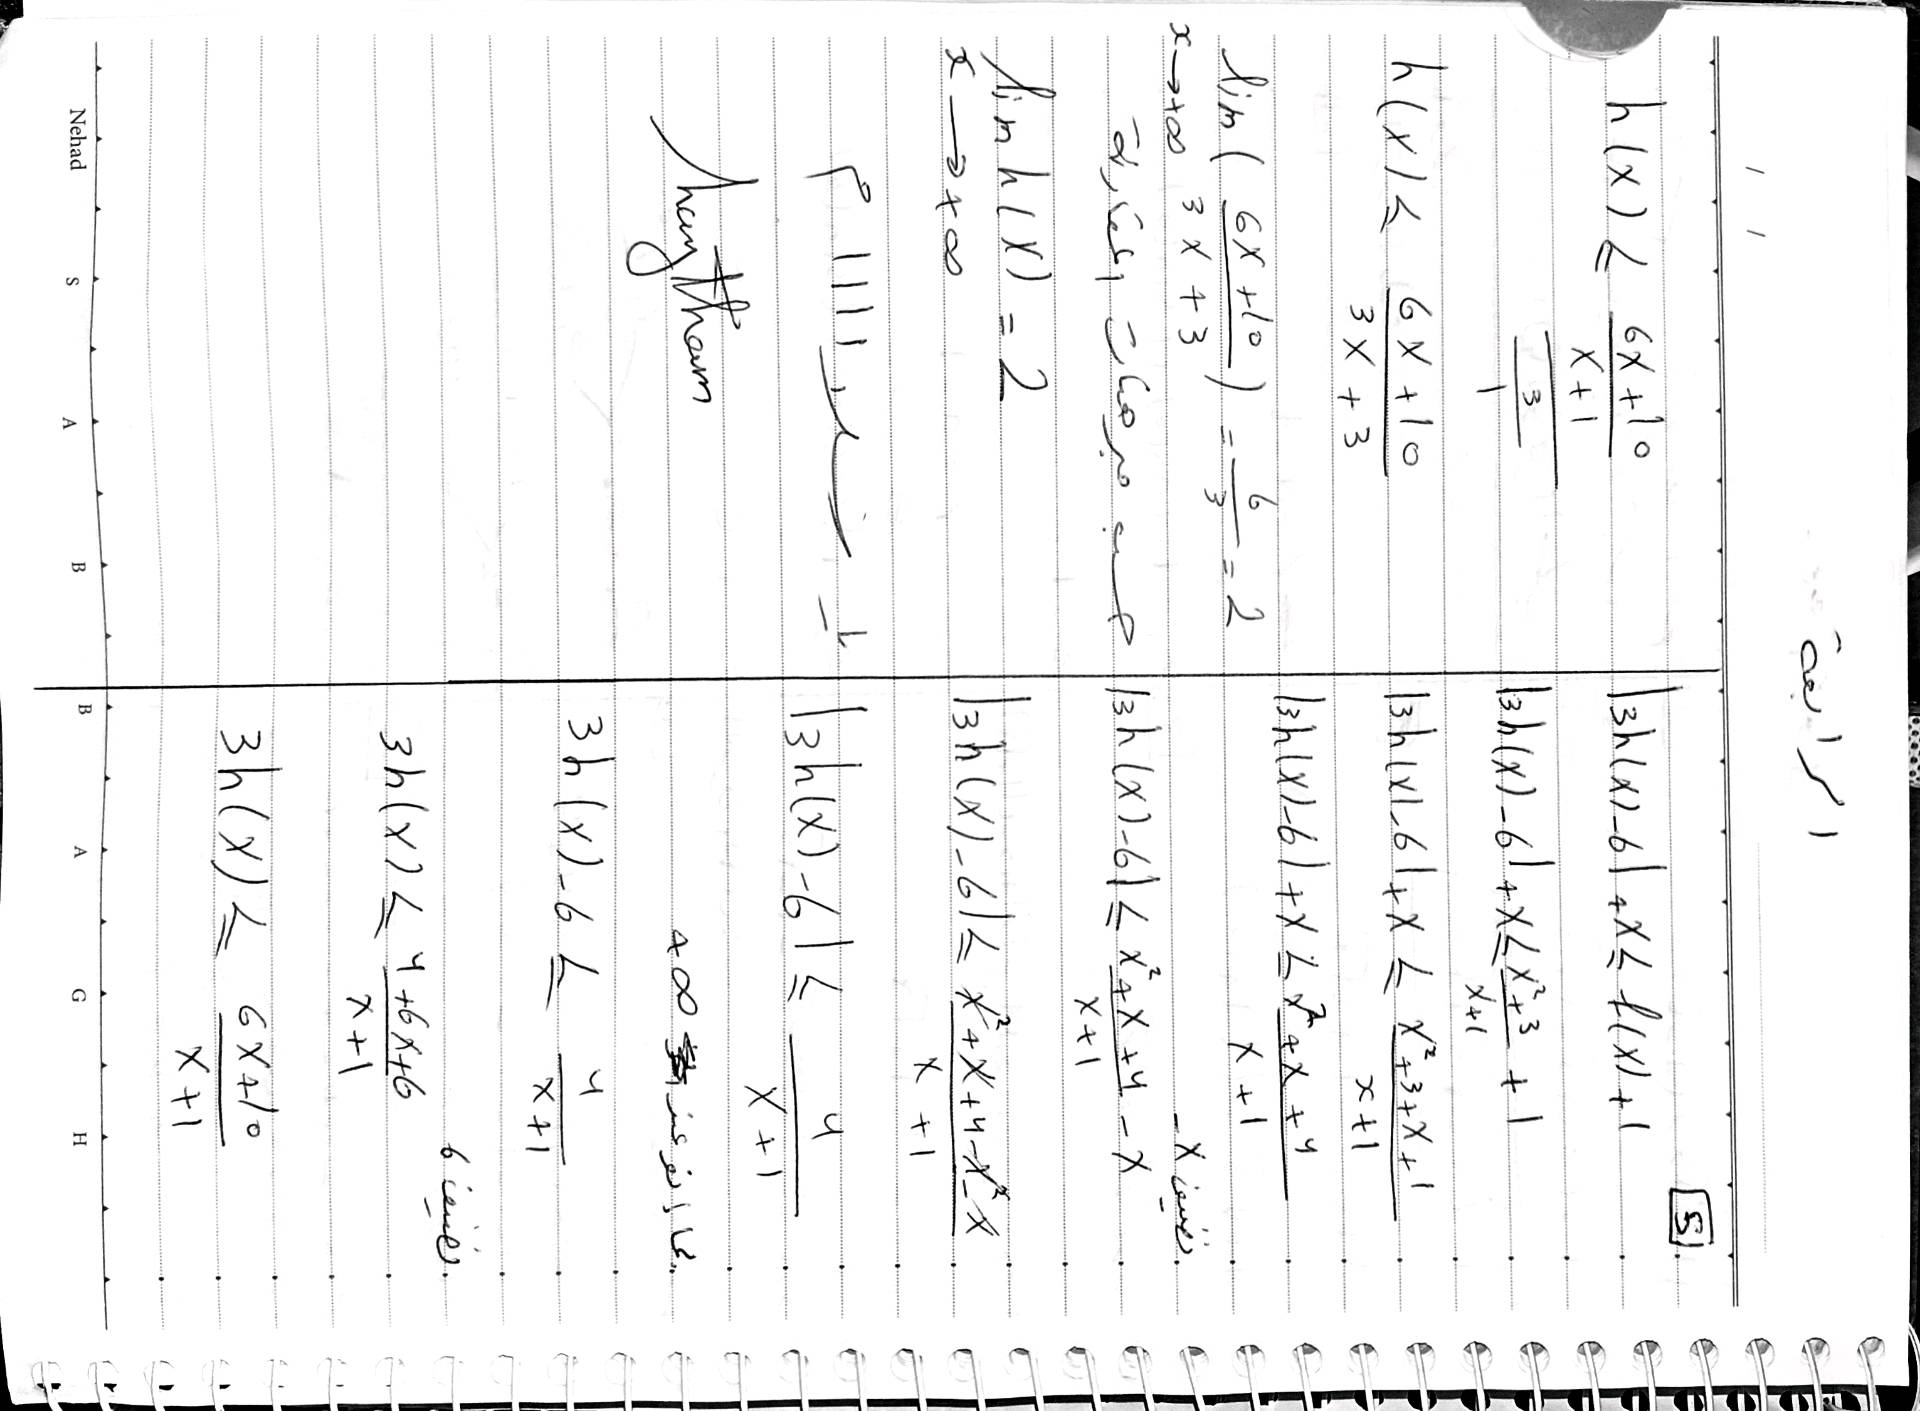 الرابعة
5
|3h(x)-6|+x ≤ f(x)+1
|3h(x)-6|+x ≤ x²+3/x+1 + 1
|3h(x)-6|+x ≤ x²+3+x+1/x+1
|3h(x)-6|+x ≤ x²+x+4/x+1
-x نضيف
|3h(x)-6| ≤ x²+x+4/x+1 - x
|3h(x)-6| ≤ x²+x+4-x²-x/x+1
|3h(x)-6| ≤ 4/x+1
+∞
3h(x)-6 ≤ 4/x+1
نضيف 6
3h(x) ≤ 4+6x+6/x+1
3h(x) ≤ 6x+10/x+1
h(x) ≤ 6x+10/x+1/3/1
h(x) ≤ 6x+10/3x+3
lim(6x+10/3x+3) = 6/3 = 2
x→+∞
lim h(x) = 2
x→+∞
haytham
Nehad S A B B A G H